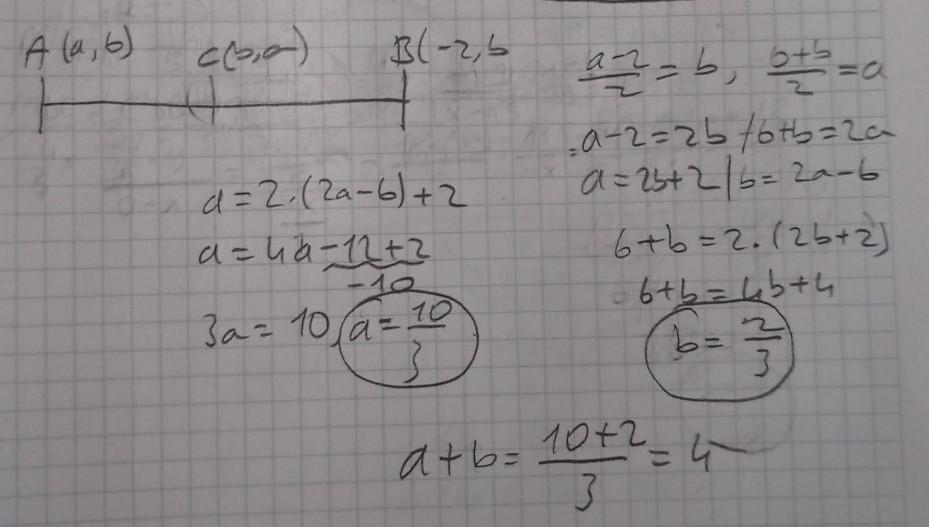 A(a,b) C(b,a) B(-2,6
\frac{a-2}{2} = b, \frac{6+b}{2} = a
a-2=2b / 6+b=2a
a=2b+2 | b=2a-6
a=2.(2a-6)+2
a=4a-12+2
-10
3a=10, a=\frac{10}{3}
6+b=2.(2b+2)
6+b=4b+4
b=\frac{2}{3}
a+b=\frac{10+2}{3}=4